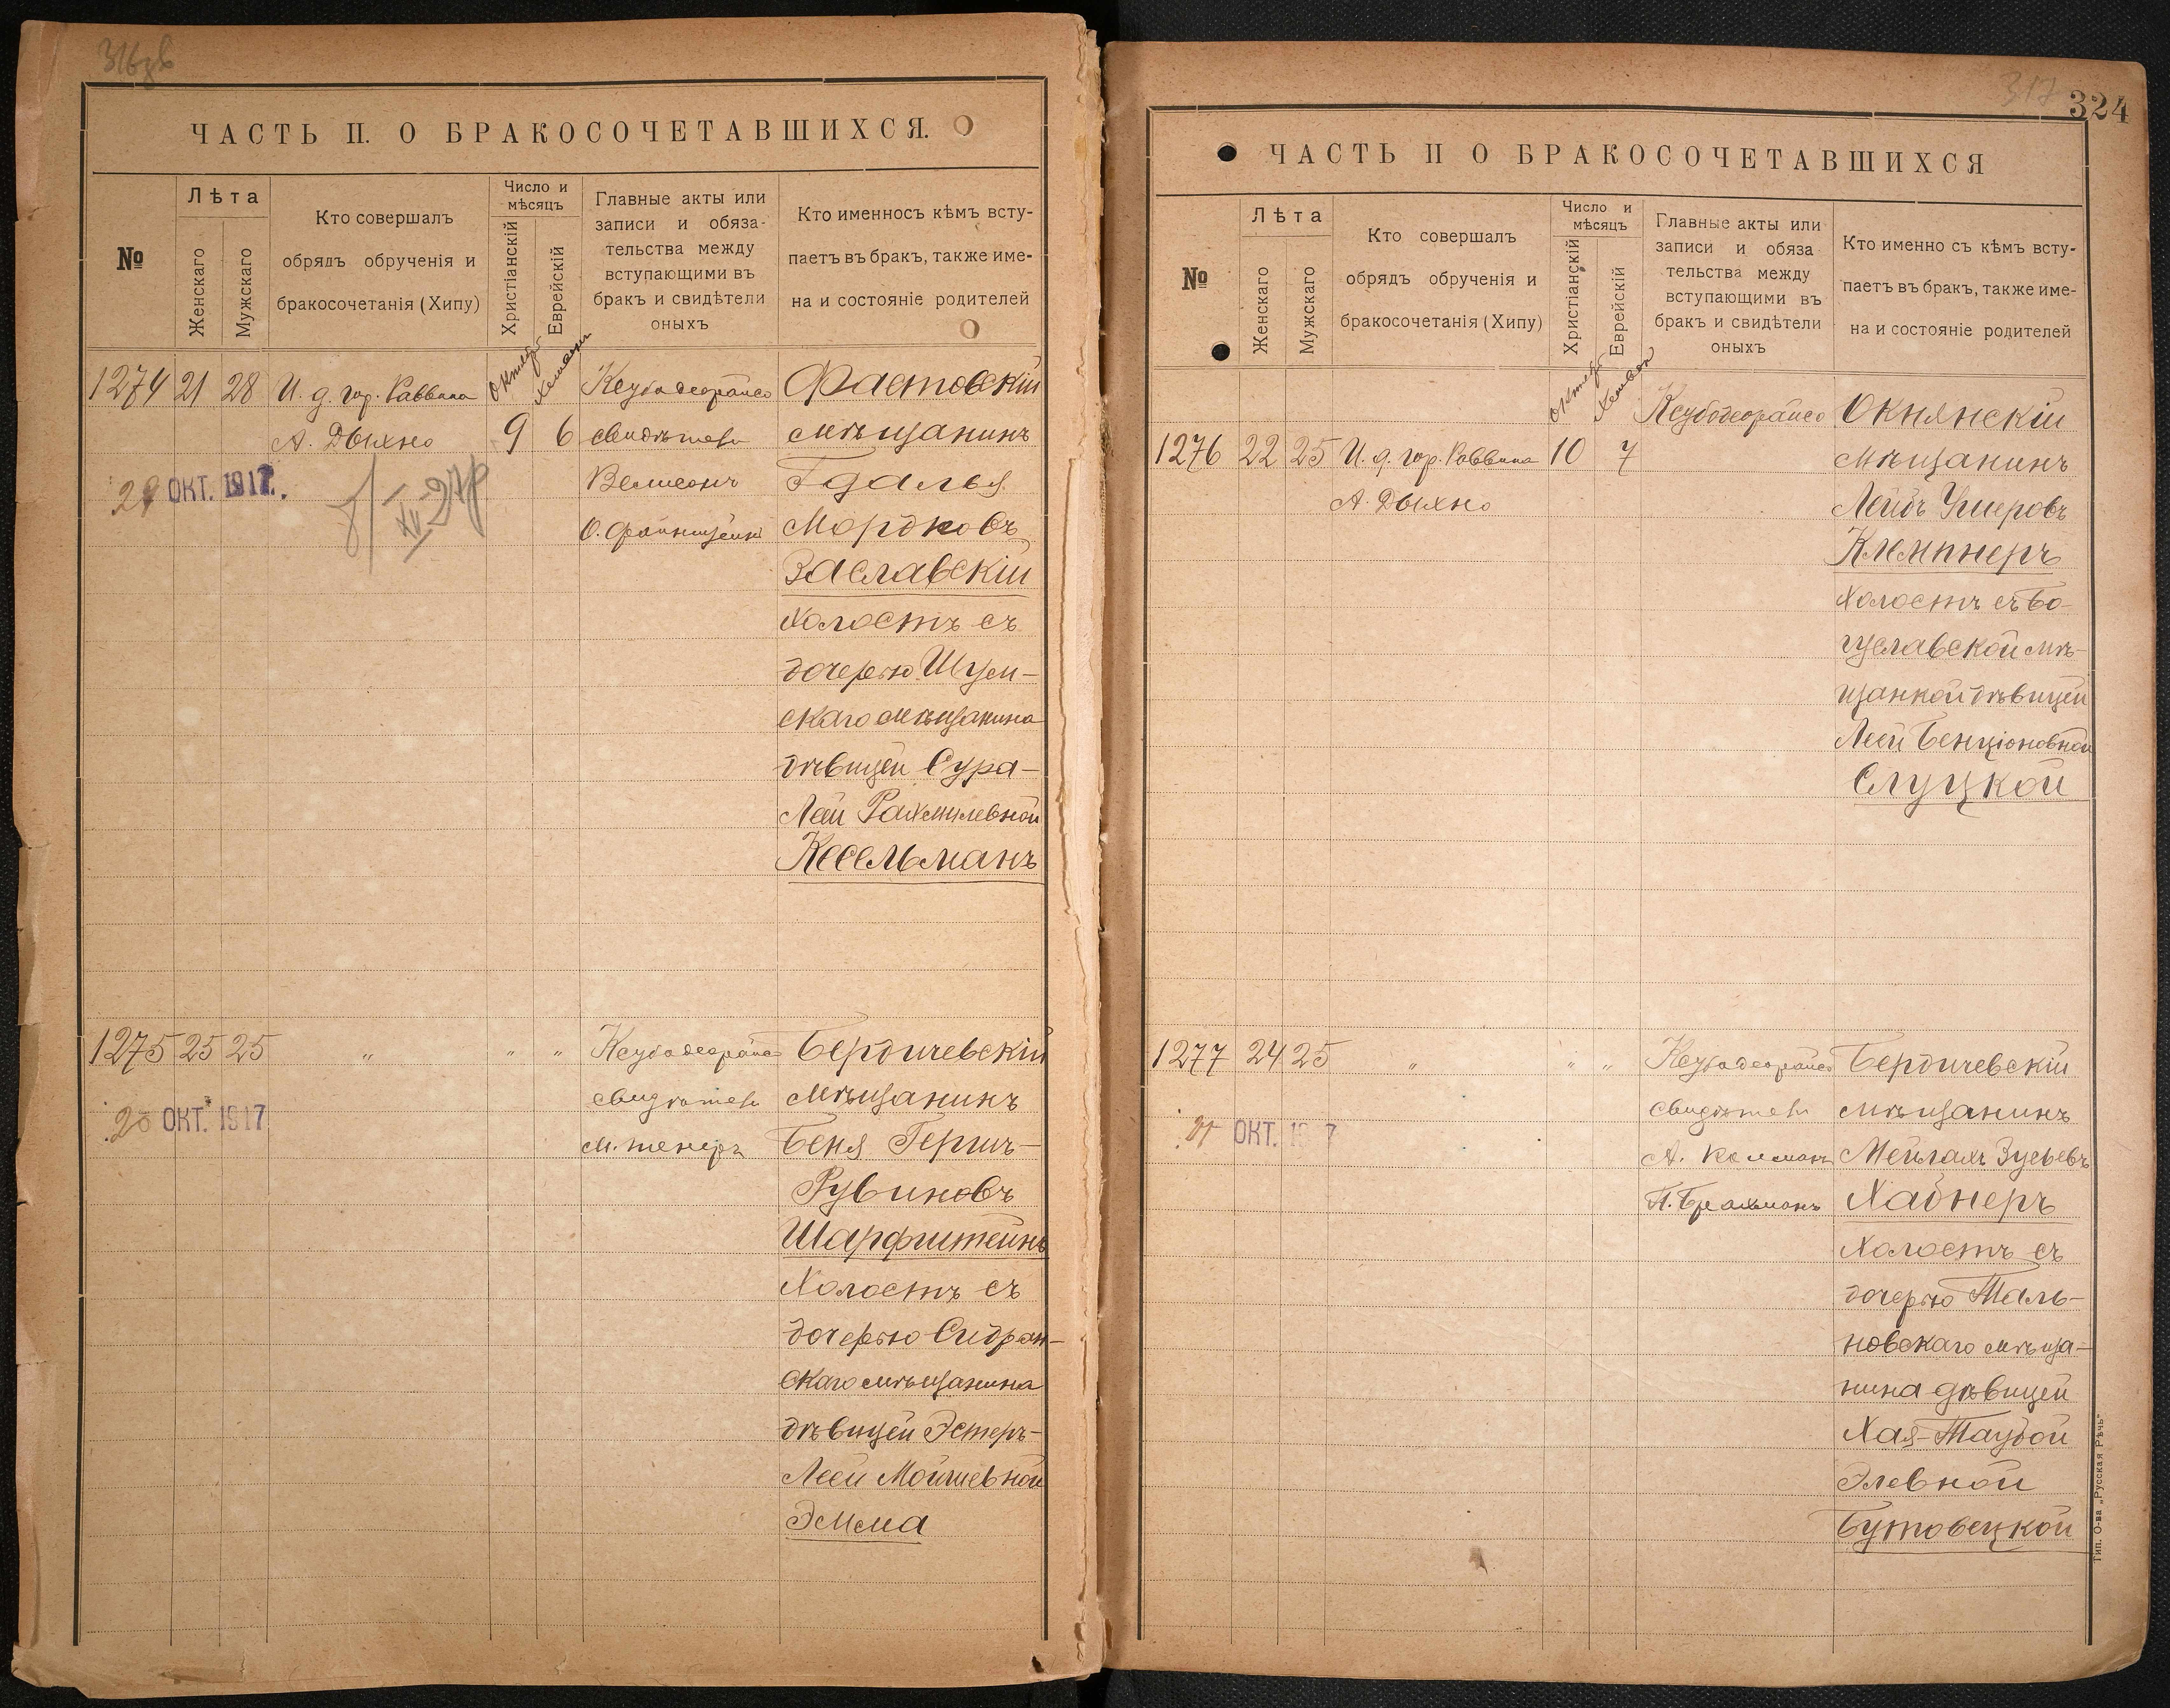 316зв
ЧАСТЬ II. О БРАКОСОЧЕТАВШИХСЯ.
№
Лѣта
Женскаго
Мужскаго
Кто совершалъ
обрядъ обрученія и
бракосочетанія (Хипу)
Число и
мѣсяцъ
Христіанскій
Еврейскій
Главные акты или
записи и обяза-
тельства между
вступающими въ
бракъ и свидѣтели
оныхъ
Кто именносъ кѣмъ всту-
паетъ въ бракъ, также име-
на и состояніе родителей
1274 21 28 И. д. гор. Раввина
А. Дыхно
9 6
свидѣтели
ОКТ. 1917.
Фастовскій
мѣщанинъ
Гдалья
Мордковъ
Заславскій
холостъ съ
дочерью Шум-
скаго мѣщанина
дѣвицей Сура-
Леи Рахмилевной
Кесельманъ
1275 25 25 " " "
свидѣтели
ОКТ. 1917
Бердичевскій
мѣщанинъ
Беня Гершъ-
Рувиновъ
Шарфштейнъ
Холостъ съ
дочерью Сидран-
скаго мѣщанина
дѣвицей Эстеръ-
Леей Мойшевной
Эмма
317
324
ЧАСТЬ II О БРАКОСОЧЕТАВШИХСЯ
№
Лѣта
Женскаго
Мужскаго
Кто совершалъ
обрядъ обрученія и
бракосочетанія (Хипу)
Число и
мѣсяцъ
Христіанскій
Еврейскій
Главные акты или
записи и обяза
тельства между
вступающими въ
бракъ и свидѣтели
оныхъ
Кто именно съ кѣмъ всту-
паетъ въ бракъ, также име-
на и состояніе родителей
1276 22 25 И. д. гор. Раввина 10 7
А. Дыхно
Окнянскій
мѣщанинъ
Лейбъ Ушеровъ
Клемпнеръ
холостъ съ Бо-
гуславской мѣ-
щанкой дѣвицей
Леей Бенціоновной
Слуцкой
1277 24 25 " " "
свидѣтели
А. Колманъ
П. Брахманъ
ОКТ. 1917
Бердичевскій
мѣщанинъ
Мейлахъ Зусьевъ
Хабнеръ
Холостъ съ
дочерью Таль-
новскаго мѣща-
нина дѣвицей
Хая-Таубой
Элевной
Бутовецкой
Тип. О-ва „Русская Рѣчь"